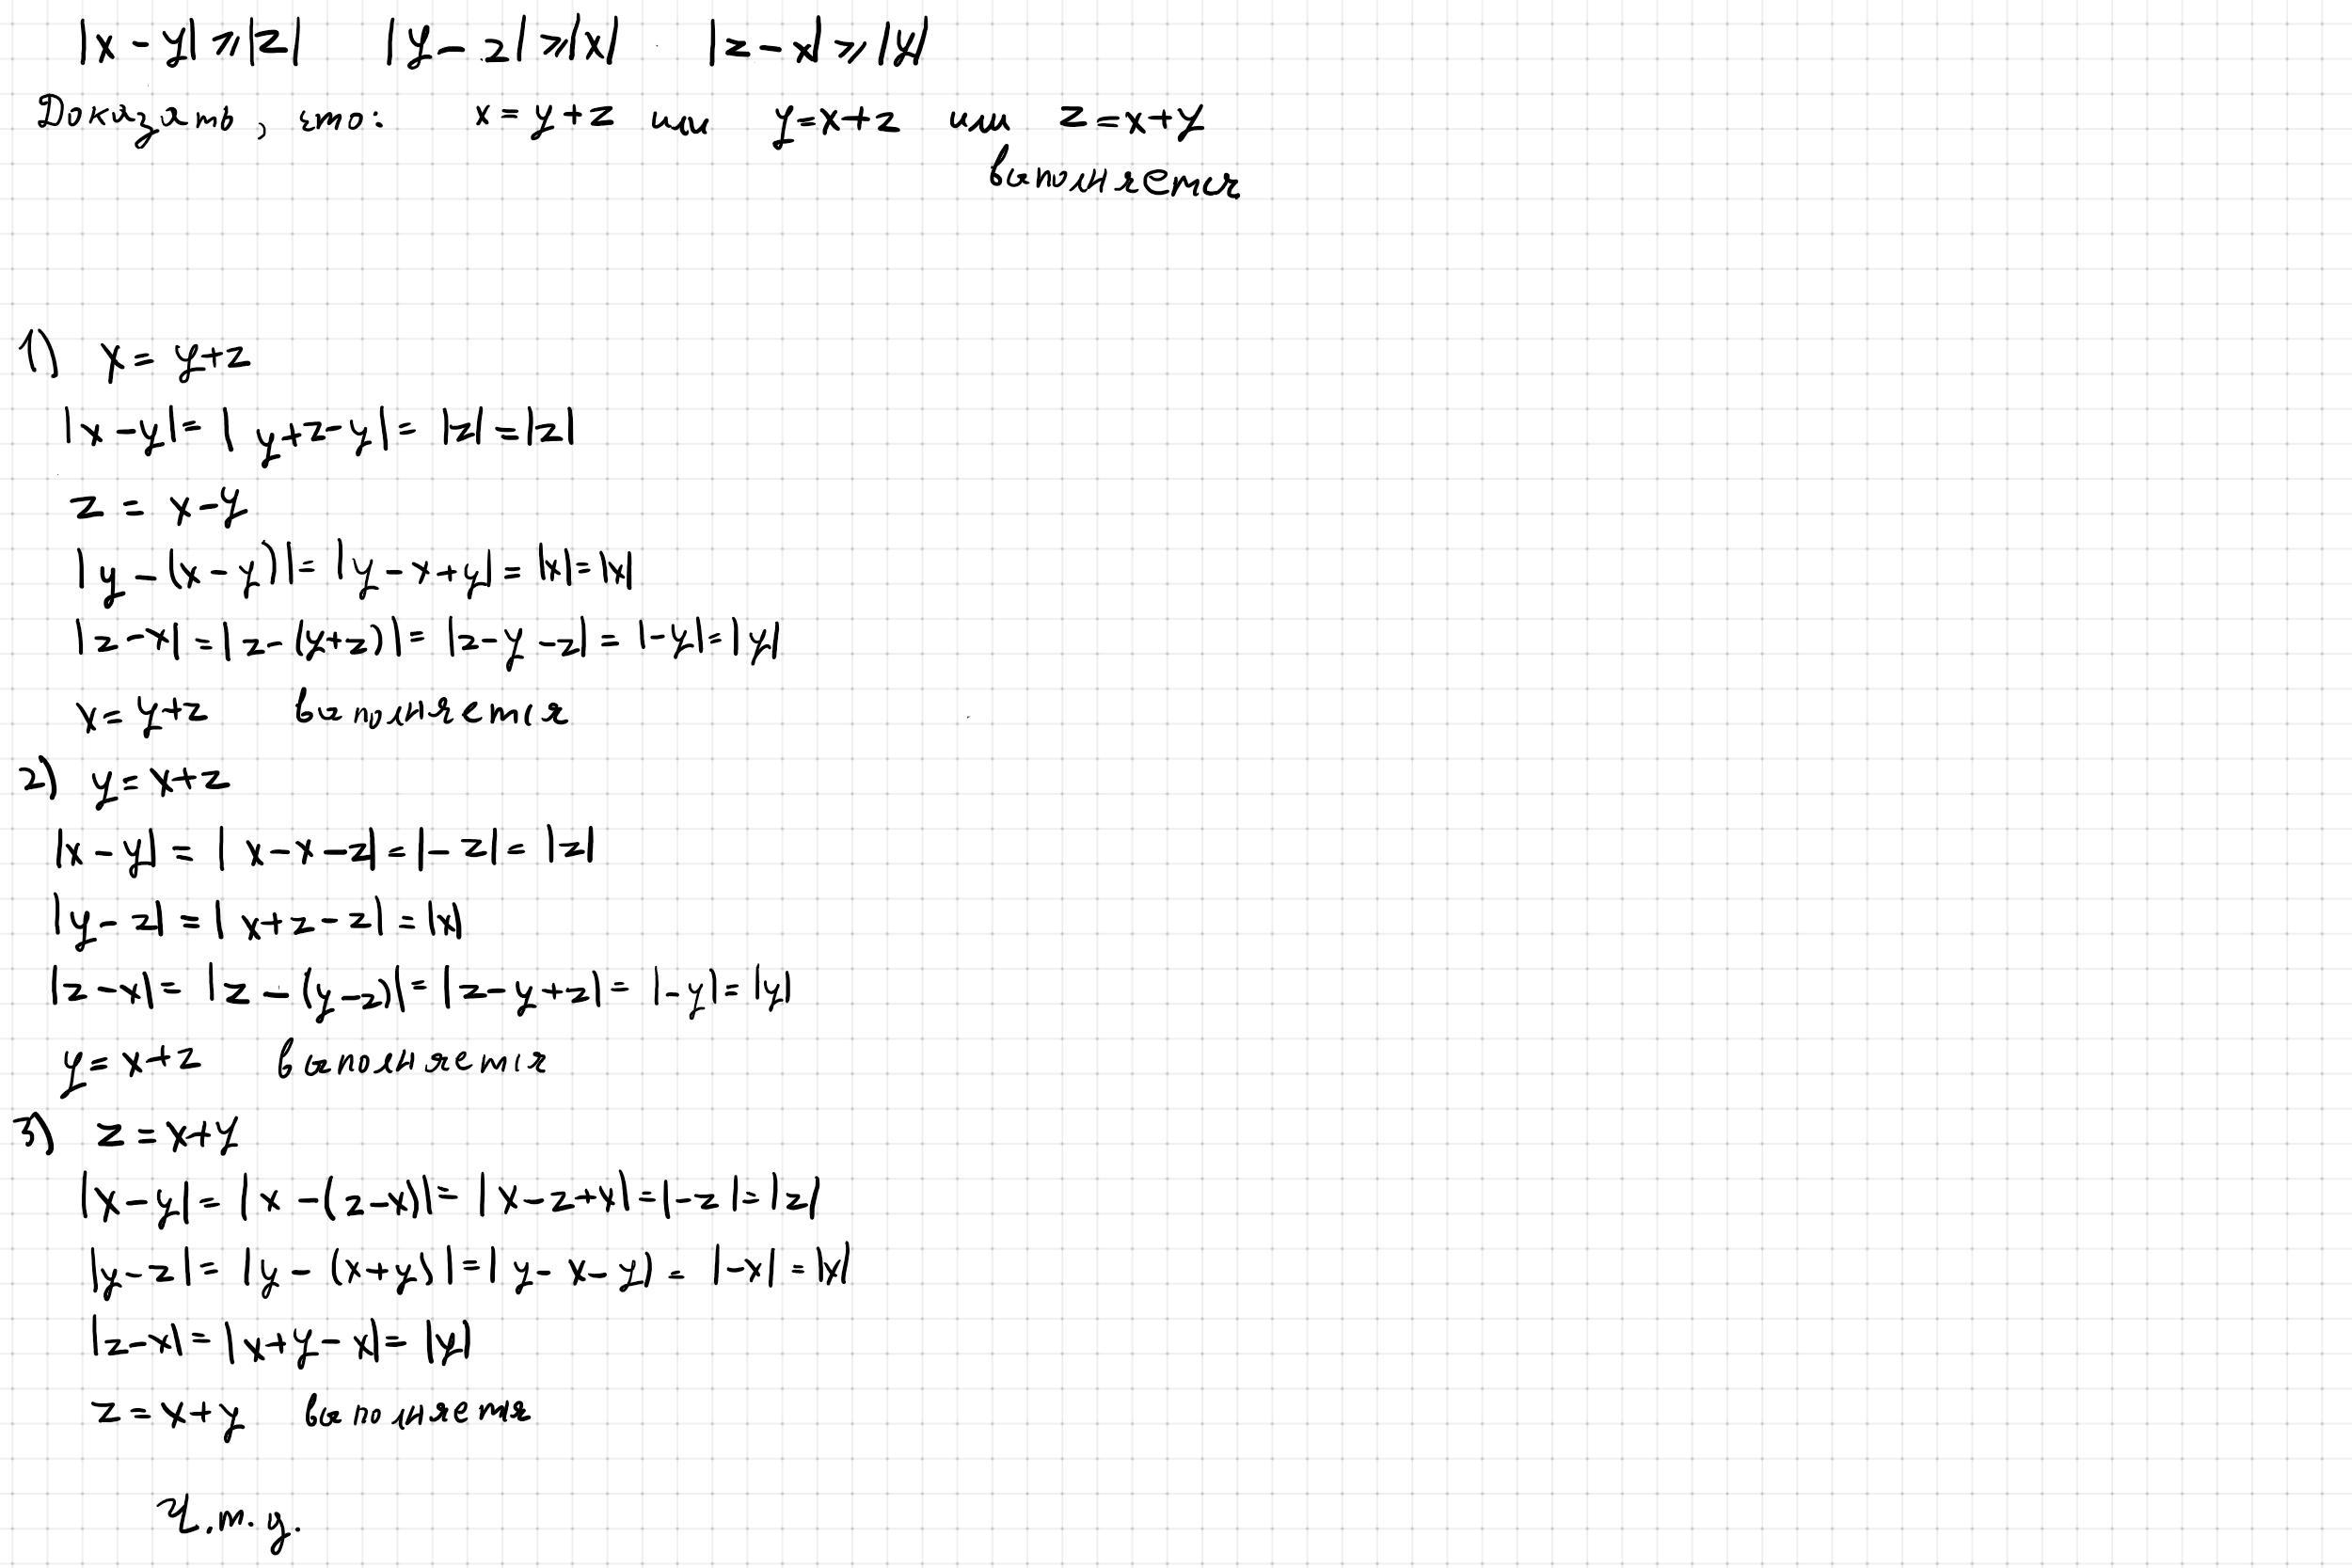 |x - y| ⩾ |z| |y - z| ⩾ |x| |z - x| ⩾ |y|
Доказать, что: x = y + z или y = x + z или z = x + y
выполняется
1) x = y + z
|x - y| = |y + z - y| = |z| = |z|
z = x - y
|y - (x - y)| = |y - x + y| = |x| = |x|
|z - x| = |z - (y + z)| = |z - y - z| = |-y| = |y|
x = y + z выполняется
2) y = x + z
|x - y| = |x - x - z| = |-z| = |z|
|y - z| = |x + z - z| = |x|
|z - x| = |z - (y - z)| = |z - y + z| = |-y| = |y|
y = x + z выполняется
3) z = x + y
|x - y| = |x - (z - x)| = |x - z + x| = |-z| = |z|
|y - z| = |y - (x + y)| = |y - x - y| = |-x| = |x|
|z - x| = |x + y - x| = |y|
z = x + y выполняется
Ч.т.д.